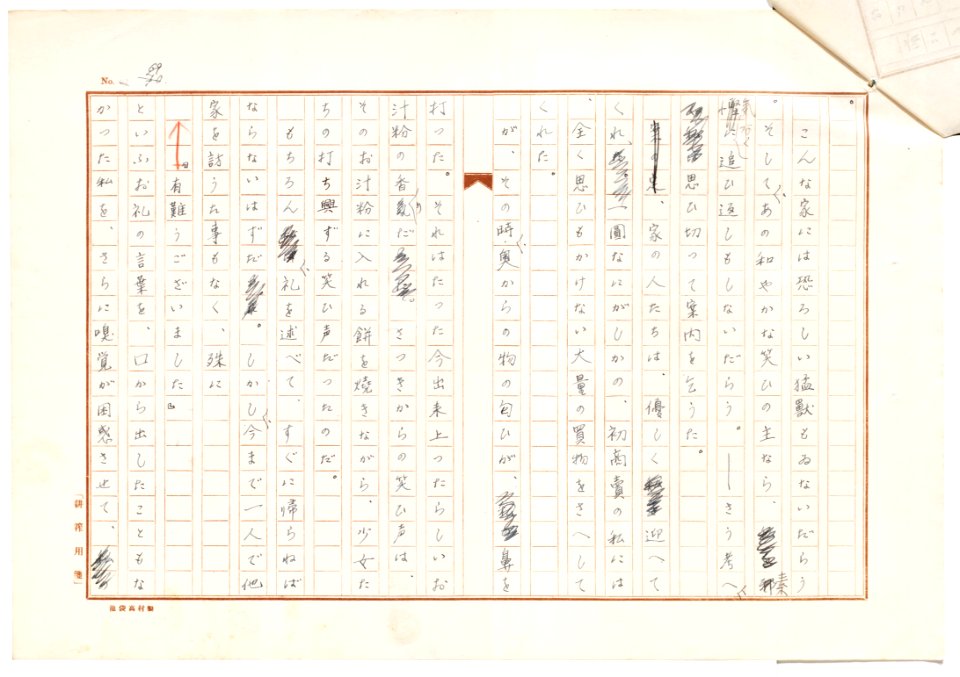 No. 
こんな家には恐ろしい猛獣もゐないだらう
。そして、あの和やかな笑ひの主なら、素
気なく追ひ返しもしないだらう。――さう考へ
思ひ切って案内を乞うた。
家の人たちは、優しく迎へて
くれ、一圓なにがしかの、初商賣の私には
、全く思ひもかけない大量の買物をさへして
くれた。
が、その時、奥からの物の匂ひが、鼻を
打った。それはたった今出来上ったらしいお
汁粉の香りだ。さっきからの笑ひ声は、
そのお汁粉に入れる餅を焼きながら、少女た
ちの打ち興ずる笑ひ声だったのだ。
もちろん、礼を述べて、すぐに帰らねば
ならないはずだ。しかし、今まで一人で他
家を訪うた事もなく、殊に
「有難うございました」
といふお礼の言葉を、口から出したこともな
かった私を、さらに嗅覚が困惑させて、
「耕筰用箋」
池袋高村製